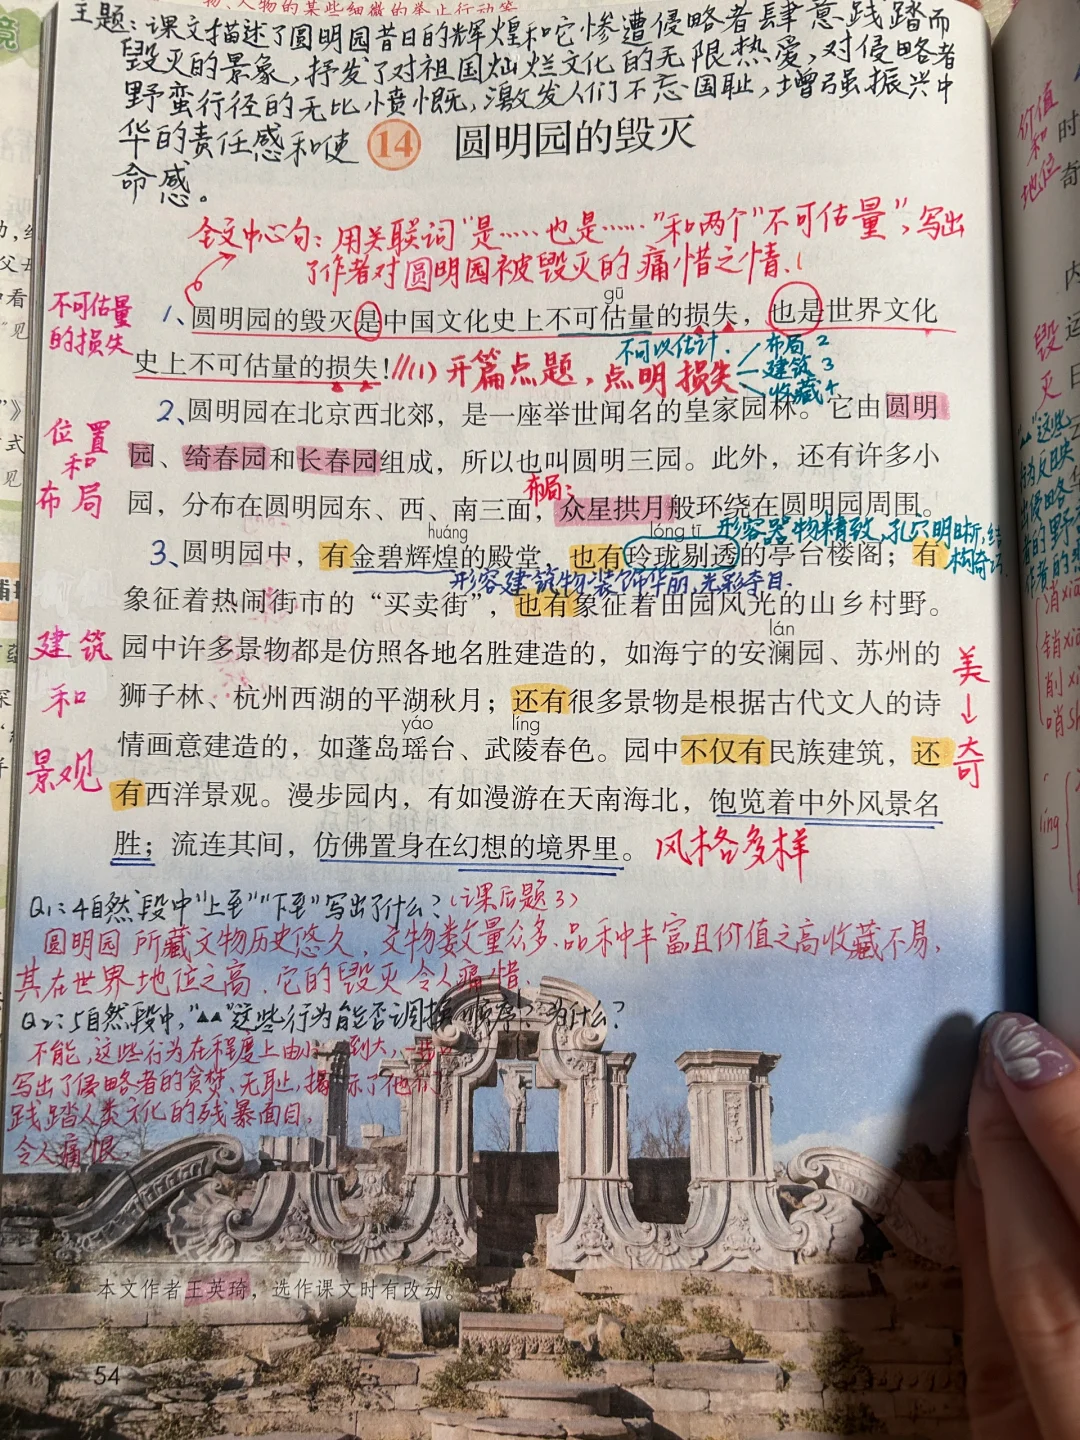 物、人物的某些细微的举止行动等
主题:课文描述了圆明园昔日的辉煌和它惨遭侵略者肆意践踏而
毁灭的景象,抒发了对祖国灿烂文化的无限热爱,对侵略者
野蛮行径的无比愤慨,激发人们不忘国耻,增强振兴中
华的责任感和使
命感。
14 圆明园的毁灭
全文中心句:用关联词“是……也是……”和两个“不可估量”,写出
了作者对圆明园被毁灭的痛惜之情.
不可估量
的损失
gū
1、圆明园的毁灭是中国文化史上不可估量的损失,也是世界文化
史上不可估量的损失!//(1)开篇点题,点明损失
不可以估计.
布局 2
建筑 3
收藏 4
位置
和
布局
2、圆明园在北京西北郊,是一座举世闻名的皇家园林。它由圆明
园、绮春园和长春园组成,所以也叫圆明三园。此外,还有许多小
布局:
园,分布在圆明园东、西、南三面,众星拱月般环绕在圆明园周围。
形容器物精致,孔穴明晰,结
构奇巧
huáng lóng tī
3、圆明园中,有金碧辉煌的殿堂,也有玲珑剔透的亭台楼阁;有
形容建筑物装饰华丽,光彩夺目.
象征着热闹街市的“买卖街”,也有象征着田园风光的山乡村野。
lán
园中许多景物都是仿照各地名胜建造的,如海宁的安澜园、苏州的
狮子林、杭州西湖的平湖秋月;还有很多景物是根据古代文人的诗
yáo líng
情画意建造的,如蓬岛瑶台、武陵春色。园中不仅有民族建筑,还
有西洋景观。漫步园内,有如漫游在天南海北,饱览着中外风景名
胜;流连其间,仿佛置身在幻想的境界里。风格多样
建筑
和
景观
美
↓
奇
Q1:4自然段中“上至”“下至”写出了什么?(课后题3)
圆明园所藏文物历史悠久,文物数量众多、品种丰富且价值之高收藏不易,
其在世界地位之高.它的毁灭令人痛惜.
Q2:5自然段中,“▲▲”这些行为能否调换顺序?为什么?
不能,这些行为在程度上由小到大,一步
写出了侵略者的贪婪、无耻,揭示了他们
践踏人类文化的残暴面目,
令人痛恨
本文作者王英琦,选作课文时有改动。
54
价值
和
地位
毁
灭
“▲▲”这些
ling